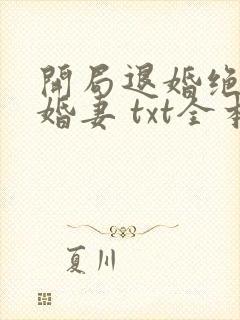 開局退婚絶
婚妻 txt全本
夏川